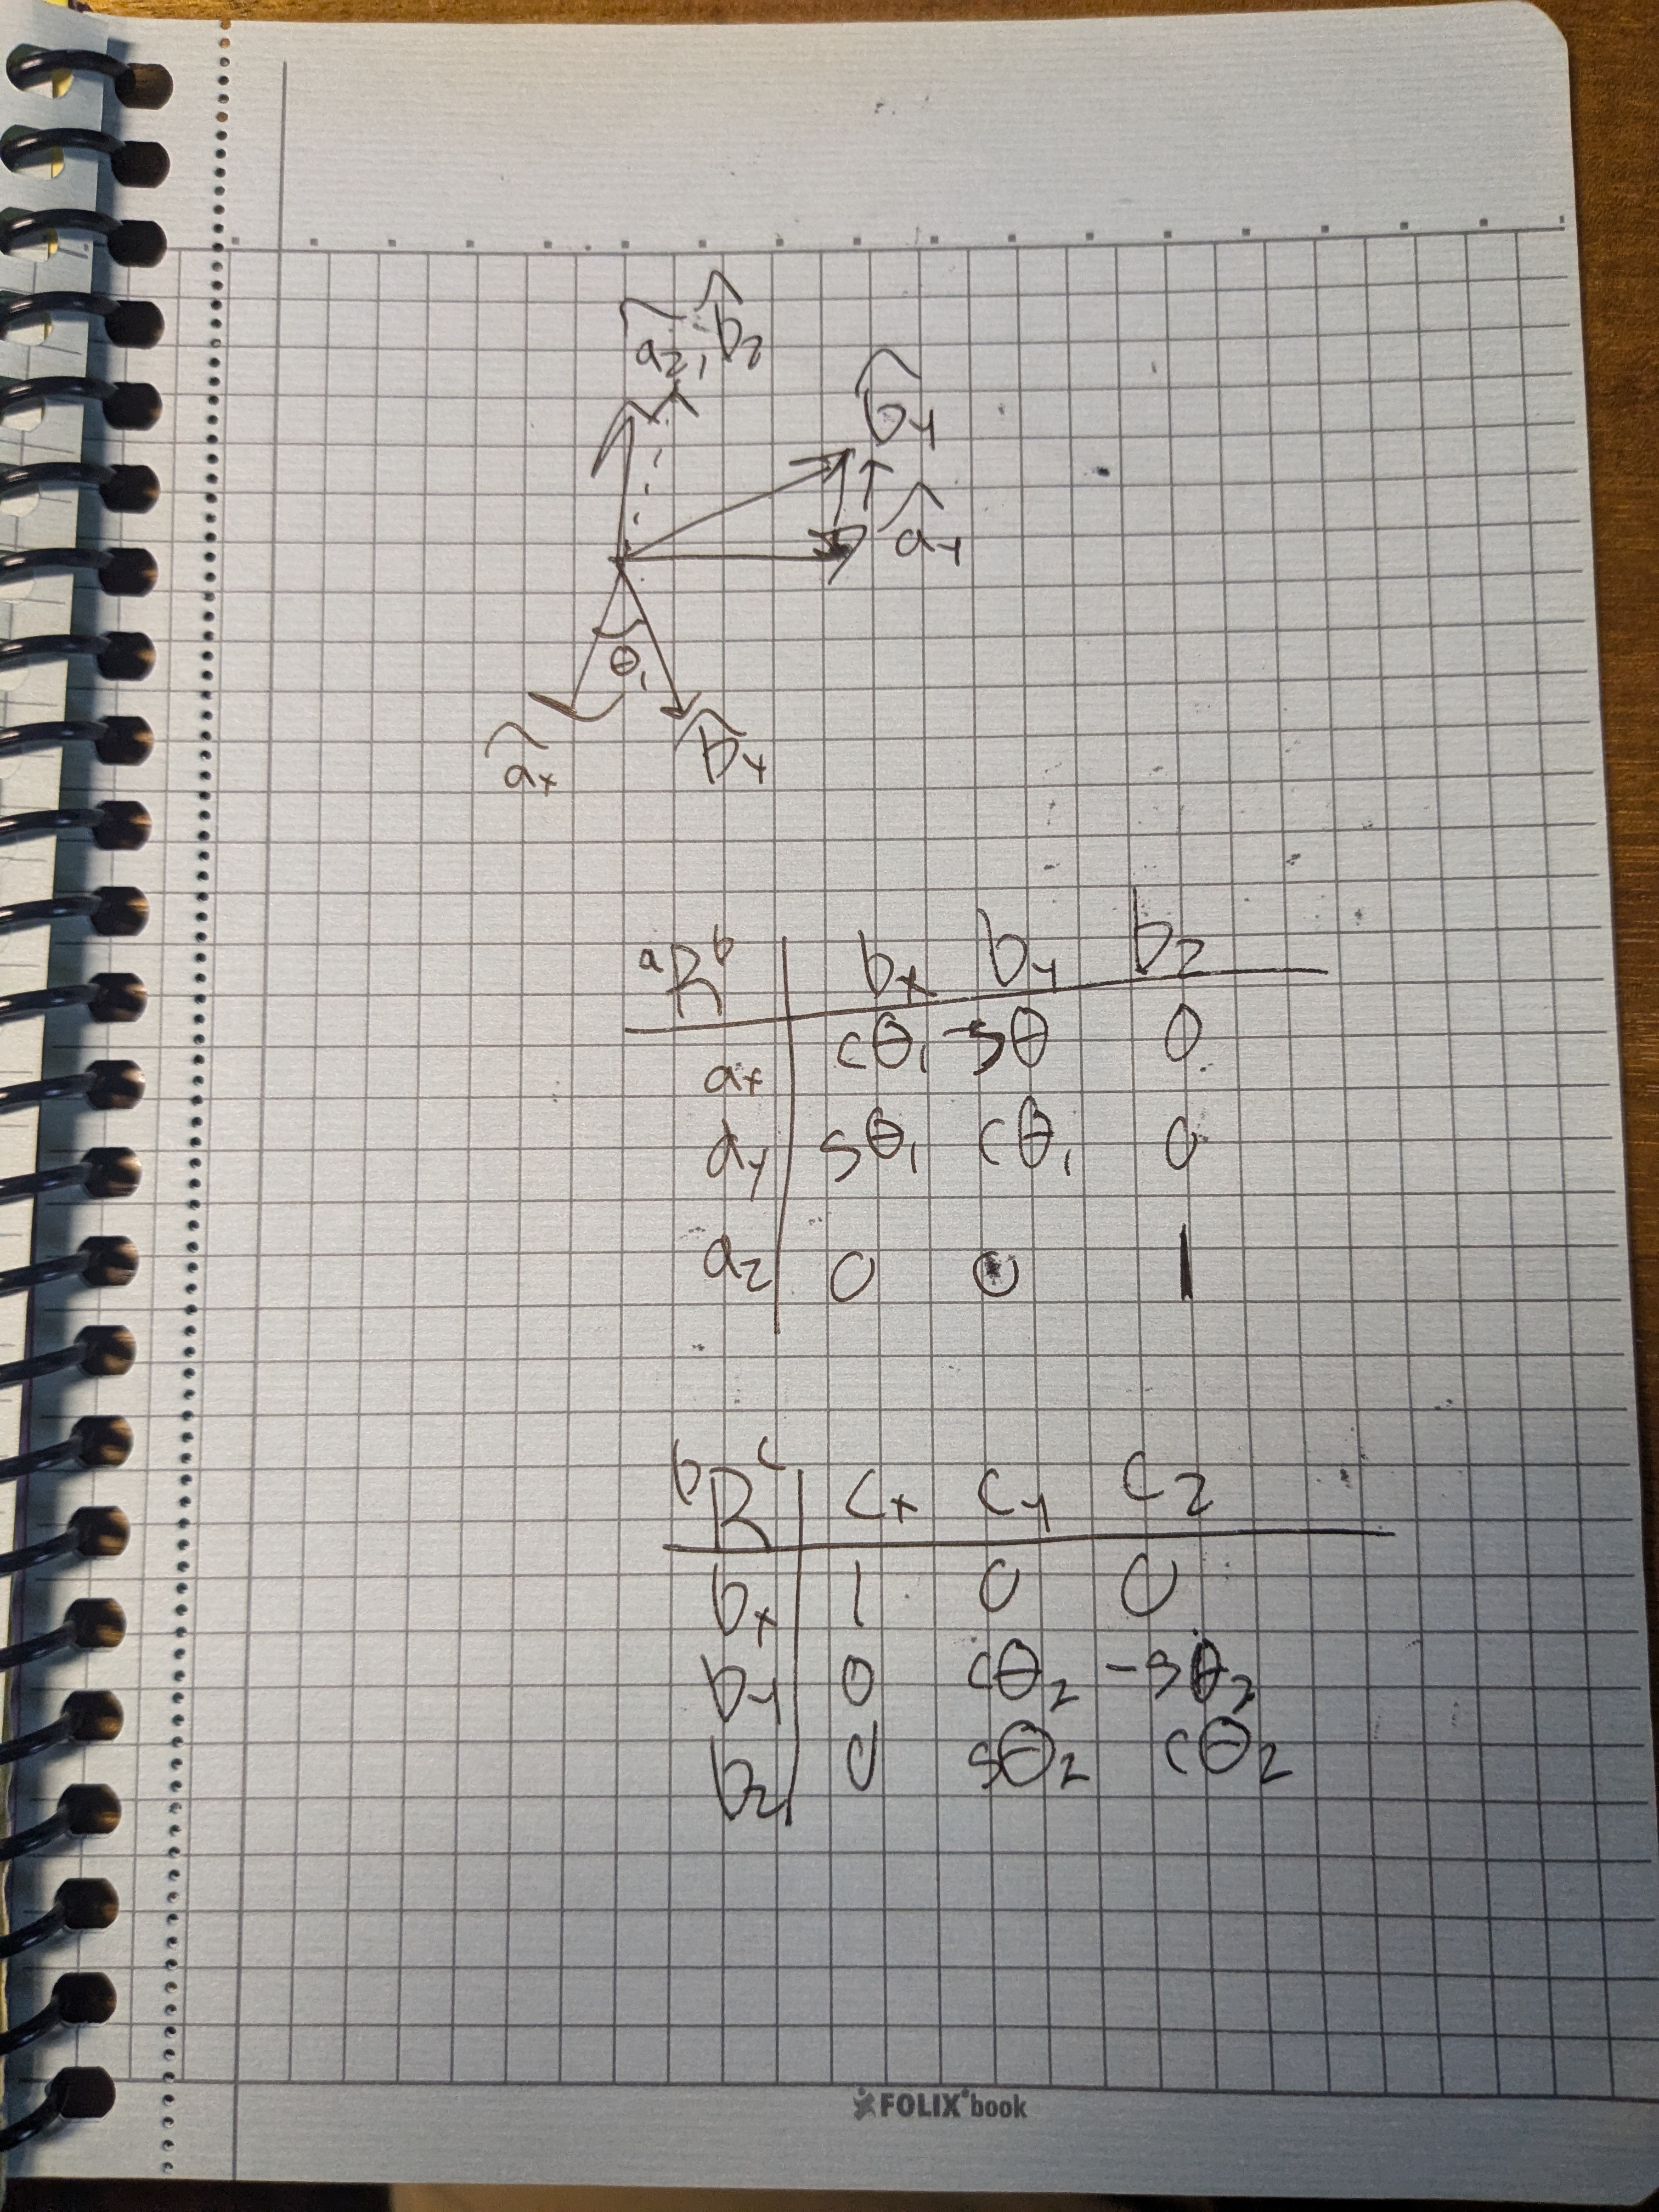 a̅z, b̂z
b̂y
ây
θ₁
âx b̂y
ᵃRᵇ bx by bz
ax cθ₁ -sθ 0
ay sθ₁ cθ₁ 0
az 0 0 1
ᵇRᶜ cx cy cz
bx 1 0 0
by 0 cθ₂ -sθ₂
bz 0 sθ₂ cθ₂
FOLIX book